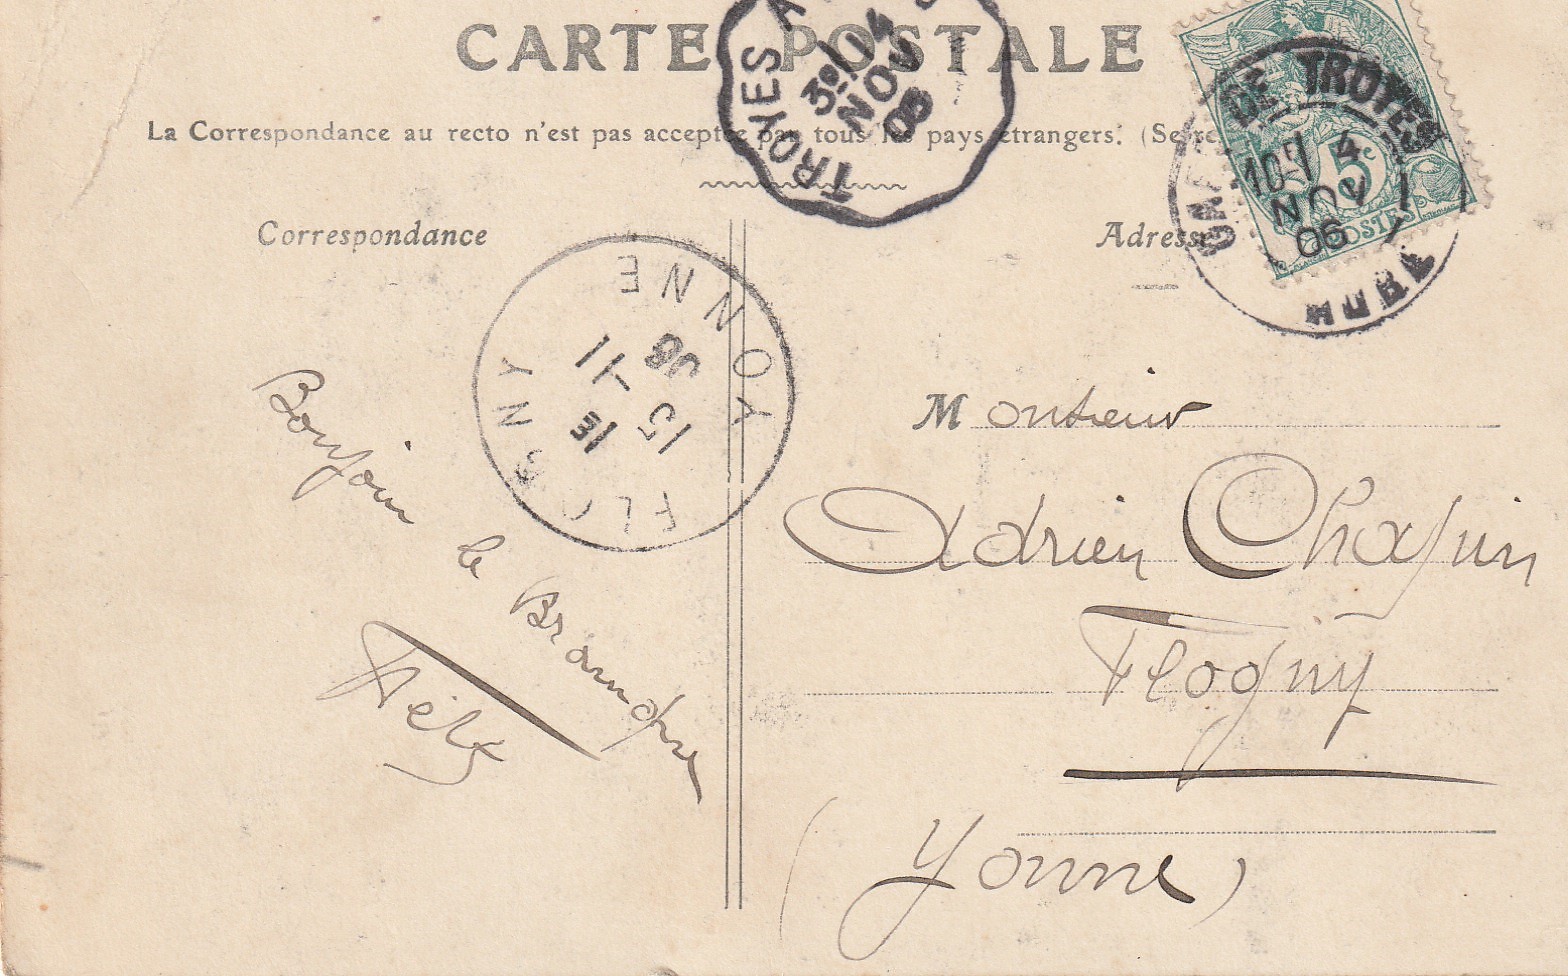 CARTE POSTALE
TROYES A
3º/14
NOV
06
GARE DE TROYES
10E/14
NOV
06
AUBE
5c
POSTES
La Correspondance au recto n'est pas acceptée par tous les pays étrangers. (Se re
Correspondance
Adresse
FLOGNY
YONNE
15 -11
06
Bonjour le
Monsieur
Adrien
Flogny
(Yonne)